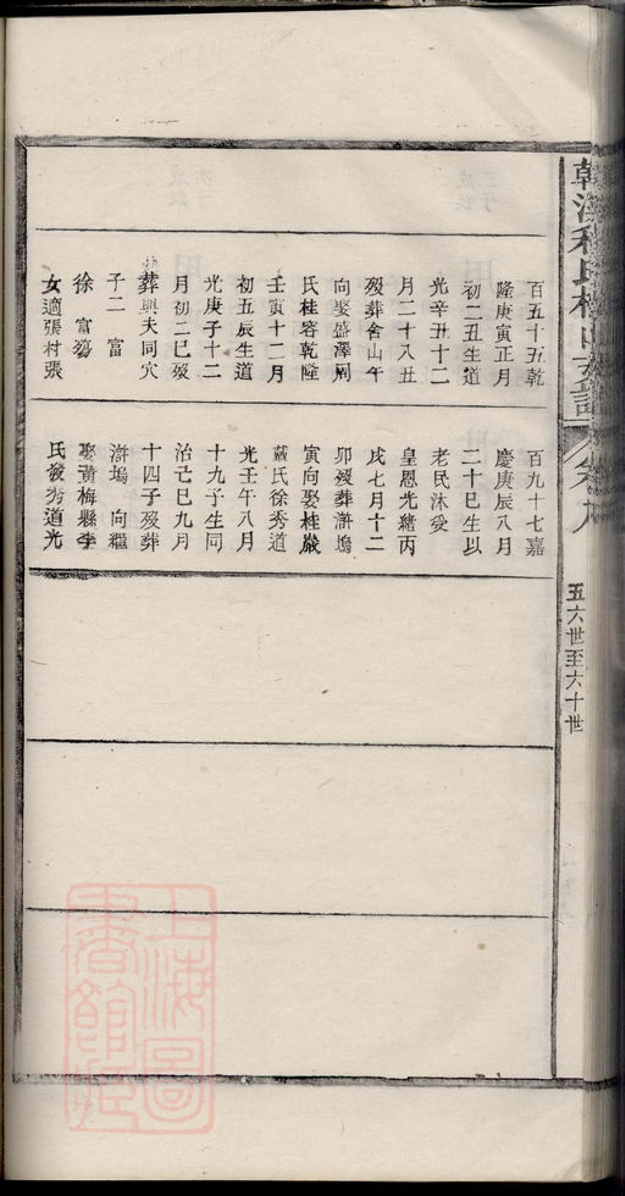 百五十五乾
隆庚寅正月
初二丑生道
光辛丑十二
月二十八丑
歿葬舍山午
向娶盛澤周
氏桂容乾隆
壬寅十二月
初五辰生道
光庚子十二
月初二巳歿
葬與夫同穴
子二　富
徐　富
女適張村張
百九十七嘉
慶庚辰八月
二十巳生以
老民沐受
皇恩光緒丙
戌七月十二
卯歿葬滸塢
寅向娶桂巖
戴氏徐秀道
光壬午八月
十九子生同
治己巳九月
十四子歿葬
滸塢　向繼
娶黃梅縣李
氏發秀道光
五六世至六十世
上海圖
書館